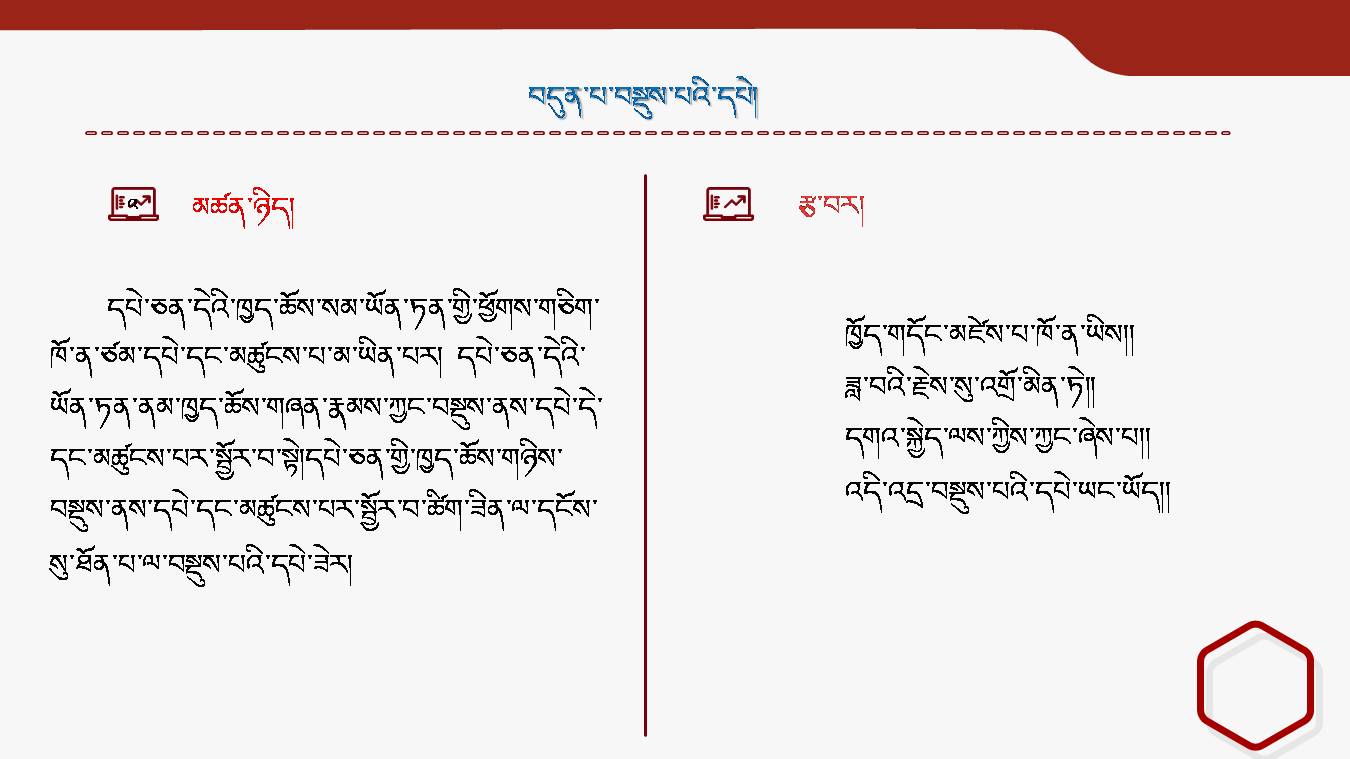 བདུན་པ་བསྡུས་པའི་དཔེ།
མཚན་ཉིད།
དཔེ་ཅན་དེའི་ཁྱད་ཆོས་སམ་ཡོན་ཏན་གྱི་ཕྱོགས་གཅིག་
ཁོ་ན་ཙམ་དཔེ་དང་མཚུངས་པ་མ་ཡིན་པར། དཔེ་ཅན་དེའི་
ཡོན་ཏན་ནམ་ཁྱད་ཆོས་གཞན་རྣམས་ཀྱང་བསྡུས་ནས་དཔེ་དེ་
དང་མཚུངས་པར་སྦྱོར་བ་སྟེ།དཔེ་ཅན་གྱི་ཁྱད་ཆོས་གཉིས་
བསྡུས་ནས་དཔེ་དང་མཚུངས་པར་སྦྱོར་བ་ཚིག་ཟིན་ལ་དངོས་
སུ་ཐོན་པ་ལ་བསྡུས་པའི་དཔེ་ཟེར།
རྩ་བར།
ཁྱོད་གདོང་མཛེས་པ་ཁོ་ན་ཡིས།།
ཟླ་བའི་རྗེས་སུ་འགྲོ་མིན་ཏེ།།
དགའ་སྐྱེད་ལས་ཀྱིས་ཀྱང་ཞེས་པ།།
འདི་འདྲ་བསྡུས་པའི་དཔེ་ཡང་ཡོད།།